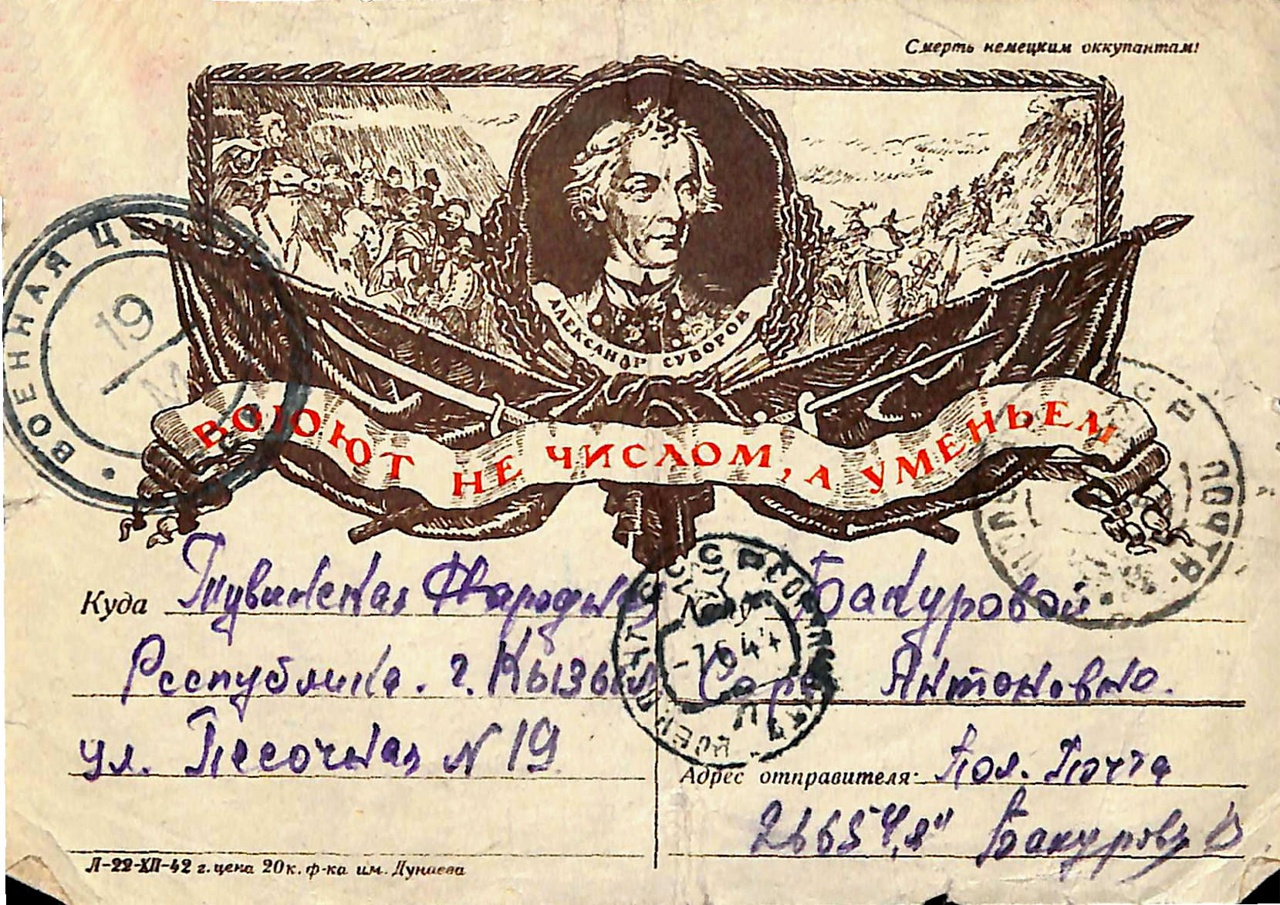 Смерть немецким оккупантам!
АЛЕКСАНДР СУВОРОВ
ВОЕННАЯ
19
М
ВОЮЮТ НЕ ЧИСЛОМ, А УМЕНЬЕМ
ПОЧТА
Куда Тувинская Народная
Республика. г. Кызыл
ул. Песочная N 19
Бакуровой
Антоновна.
Адрес отправителя: Пол. Почта
26654 "Я" Бакуров
Л-22-XII-42 г. цена 20к. ф-ка им. Дунаева